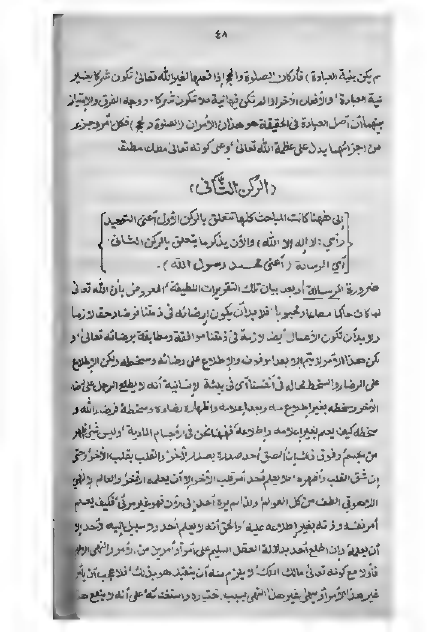 ٤٨
بنية العبادة) فأركان الصلوة والحج إذا فعلها لغير الله تعالى تكون شركا بغير
نية العبادة والأفعال الأخر اذا لم تكن فيها نية فلا تكون شركا. ووجه الفرق والإمتياز
بينهما أن أصل العبادة فى الحقيقة هو هذان الأمران (الصلوة والحج) فكل أمر وجزء
من اجزائهما يدل على عظمة الله تعالى وعلى كونه تعالى مطلق
(الركن الثانى)
إلى ههنا كانت المباحث كلها تتعلق بالركن الأول أعنى التوحيد
(أى: لا إله إلا الله) والآن يذكر ما يتعلق بالركن الثانى
أى الرسالة (أعنى محمد رسول الله).
ضرورة الرسالة وبعد بيان تلك التقريرات اللطيفة المعروض بأن الله تعالى
لما كان حاكما مطاعا ومحبوبا فلا بد أن يكون إرضائه فى ذمتنا فرضا وحقا لازما
ولا بد أن تكون الأعمال لازمة فى ذمتنا موافقة ومطابقة برضائه تعالى و
لكن هذا الأمر لا يتم إلا بعد الإطلاع على رضائه وسخطه ولكن الإطلاع
على الرضاء والسخط أنه لا يطلع الرجل على رضاء
الآخر وسخطه بغير إطلاع منه وبعد إعلامه وإظهاره رضاءه وسخطه فرضاء الله و
سخطه كيف يعلم بغير إعلامه وإطلاعه فههنا نحن فى الأجسام المادية وليس شئ أظهر
من الجسم وفوق ذلك إن الصق أحد صدره بصدر الآخر والقلب بقلب الآخر وحتى
إن شق القلب وأظهره لا يعلم أحد أمر قلب الآخر إلا أن يعلمه
ألطف من كل العوالم ولذا لم يره أحد إلى الآن فهو غير مرئى فكيف يعلم
بغير إطلاعه عليه والحق أنه لا يعلم أحد
أن يعلمه وإن اطلع أحد بدلالة العقل السليم على أمر أو أمرين من الأمور
فأولا مع كونه تعالى مالك الملك لا يلزم منه أن يتقيد هو بذلك فلا عجب أن يأمر
غير هذا الأمر أو ينهى غير هذا النهى بسبب اختياره واستغنائه على أنه لا ينفع هذا